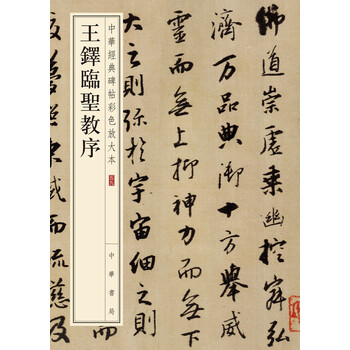 中華經典碑帖彩色放大本
王鐸臨聖教序
中華書局
佛道崇虛乘幽控寂弘
濟万品典御十方舉威
靈而無上抑神力而無
大之則弥於宇宙細之則
東域而流慈